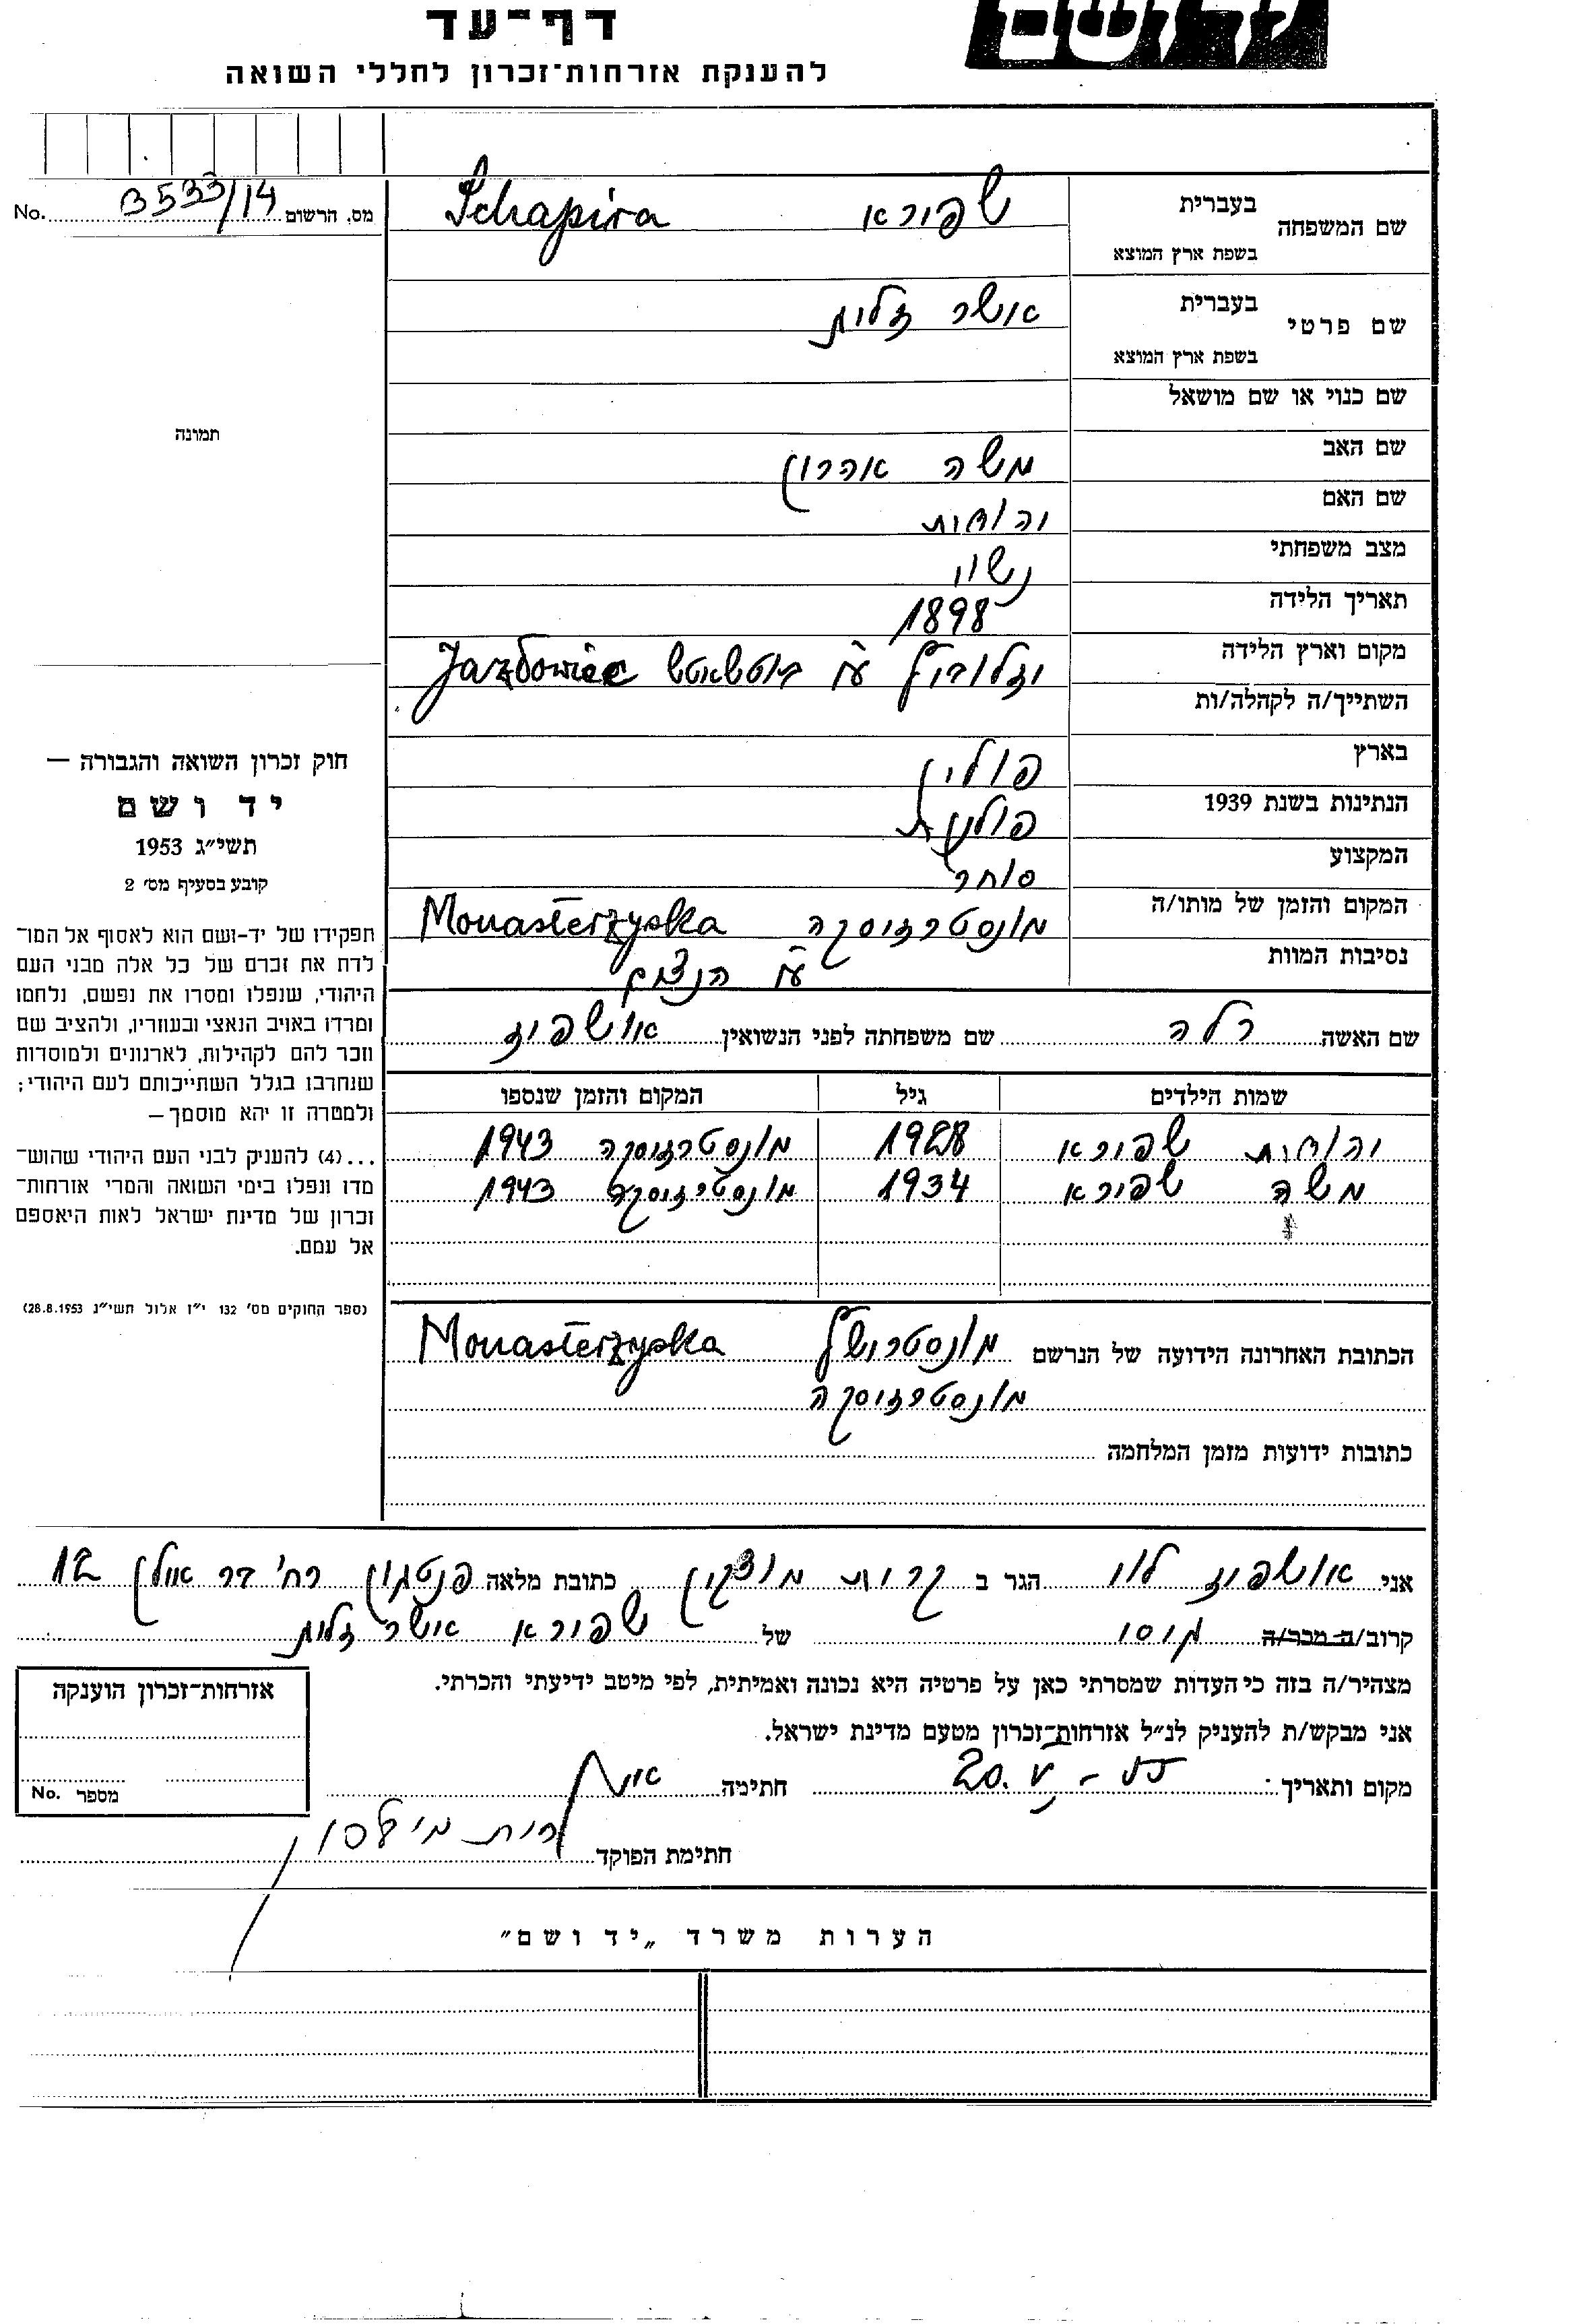 דף־עד
להענקת אזרחות־זכרון לחללי השואה
No. 3533/14 מס. הרשום
שם המשפחה בעברית שפירא Schapira
בשפת ארץ המוצא
שם פרטי בעברית אשר זליג
בשפת ארץ המוצא
שם כנוי או שם מושאל
תמונה
שם האב משה אהרון
שם האם יהודית
מצב משפחתי נשוי
תאריך הלידה 1898
מקום וארץ הלידה יזלוביץ ע"י בוטשאטש Jazdowiec
השתייך/ה לקהלה/ות
בארץ פולין
הנתינות בשנת 1939 פולנית
המקצוע סוחר
המקום והזמן של מותו/ה מונסטרזיסקה Monasterzyska
נסיבות המוות ע"י הנצים
חוק זכרון השואה והגבורה —
יד ושם
תשי״ג 1953
קובע בסעיף מס׳ 2
תפקידו של יד-ושם הוא לאסוף אל המו־
לדת את זכרם של כל אלה מבני העם
היהודי, שנפלו ומסרו את נפשם, נלחמו
ומרדו באויב הנאצי ובעוזריו, ולהציב שם
וזכר להם לקהילות, לארגונים ולמוסדות
שנחרבו בגלל השתייכותם לעם היהודי;
ולמטרה זו יהא מוסמך—
...(4) להעניק לבני העם היהודי שהוש־
מדו ונפלו בימי השואה והמרי אזרחות־
זכרון של מדינת ישראל לאות היאספם
אל עמם.
(ספר החוקים מס׳ 132 י״ז אלול תשי״ג 28.8.1953)
שם האשה רלה שם משפחתה לפני הנשואין אושפיז
שמות הילדים גיל המקום והזמן שנספו
יהודית שפירא 1928 מונסטרזיסקה 1943
משה שפירא 1934 מונסטרזיסקה 1943
הכתובת האחרונה הידועה של הנרשם מונסטרישץ Monasterzyska
מונסטרזיסקה
כתובות ידועות מזמן המלחמה
אני אושפיז לוי הגר ב קרית מוצקין כתובת מלאה רח' 12
קרוב/ה מכר/ה גיסו של שפירא אשר זליג
מצהיר/ה בזה כי העדות שמסרתי כאן על פרטיה היא נכונה ואמיתית, לפי מיטב ידיעתי והכרתי.
אני מבקש/ת להעניק לנ״ל אזרחות־זכרון מטעם מדינת ישראל.
מקום ותאריך: 20. V - 55 חתימה
אזרחות־זכרון הוענקה
No. מספר
חתימת הפוקד
הערות משרד „יד ושם״